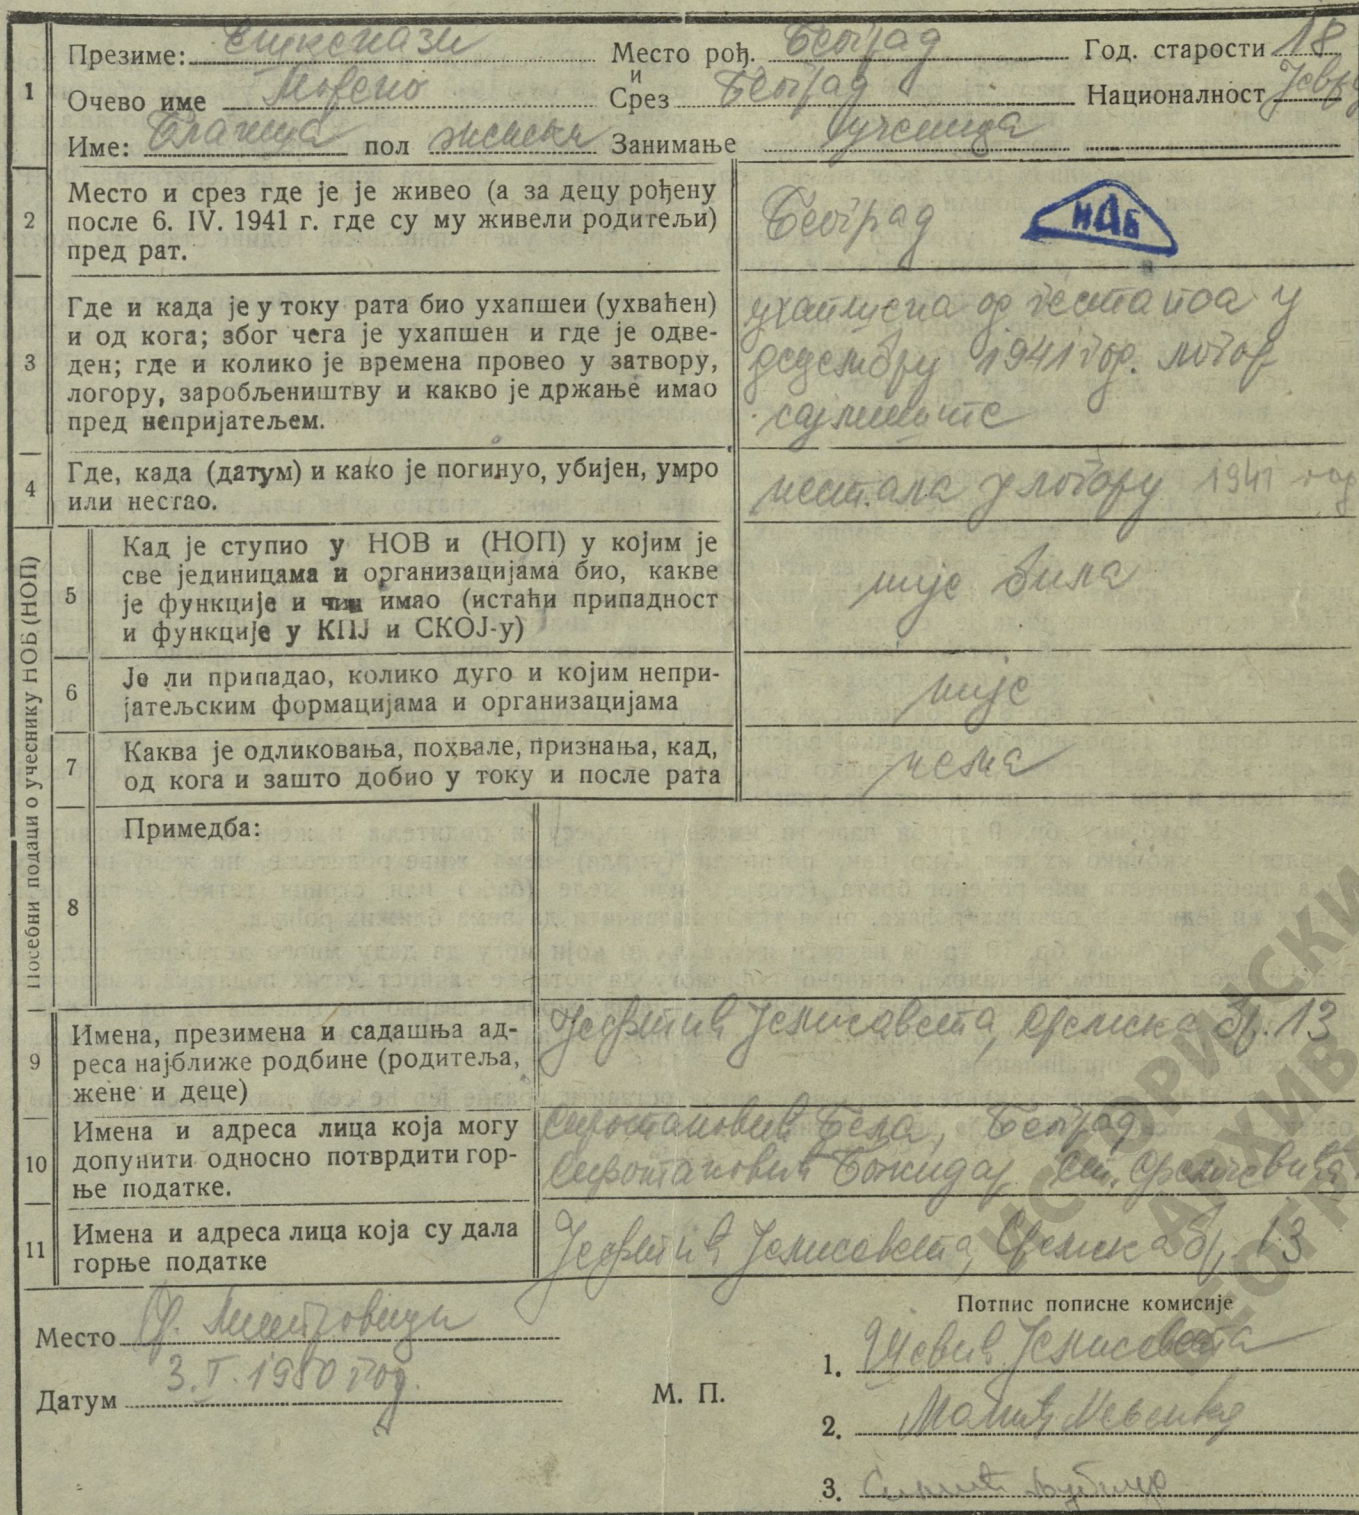 1
Презиме: Ешкенази Место рођ. Београд Год. старости 18
и
Очево име Морено Срез Београд Национaлност Јевр
Име: Благица пол женски Занимање ученица
2
Место и срез где је је живео (а за децу рођену
после 6. IV. 1941 г. где су му живели родитељи)
пред рат.
Београд
НАБ
3
Где и када је у току рата био ухапшеи (ухваћен)
и од кога; због чега је ухапшен и где је одве-
ден; где и колико је времена провео у затвору,
логору, заробљеништву и какво је држање имао
пред непријатељем.
ухапшена од гестапоа у
децембру 1941 год. логор
сајмиште
4
Где, када (датум) и како је погинуо, убијен, умро
или нестао.
нестала у логору 1941 год
Посебни подаци о учеснику НОБ (НОП)
5
Кад је ступио у НОВ и (НОП) у којим је
све јединицама и организацијама био, какве
је функције и чин имао (истаћи припадност
и функције у КПЈ и СКОЈ-у)
није била
6
Је ли припадао, колико дуго и којим непри-
јатељским формацијама и организацијама
није
7
Каква је одликовања, похвале, признања, кад,
од кога и зашто добио у току и после рата
нема
8
Примедба:
9
Имена, презимена и садашња ад-
реса најближе родбине (родитеља,
жене и деце)
Јевтић Јелисавета, Сремска бр. 13
10
Имена и адреса лица која могу
допунити односно потврдити гор-
ње податке.
Бела, Београд
Божидар
11
Имена и адреса лица која су дала
горње податке
Јевтић Јелисавета, Сремска бр. 13
Место С. Митровици
Датум 3.I.1950 год.
М. П.
Потпис пописне комисије
1. Јелисавета
2.
3.
ИСТОРИЈСКИ
АРХИВ
БЕОГРА